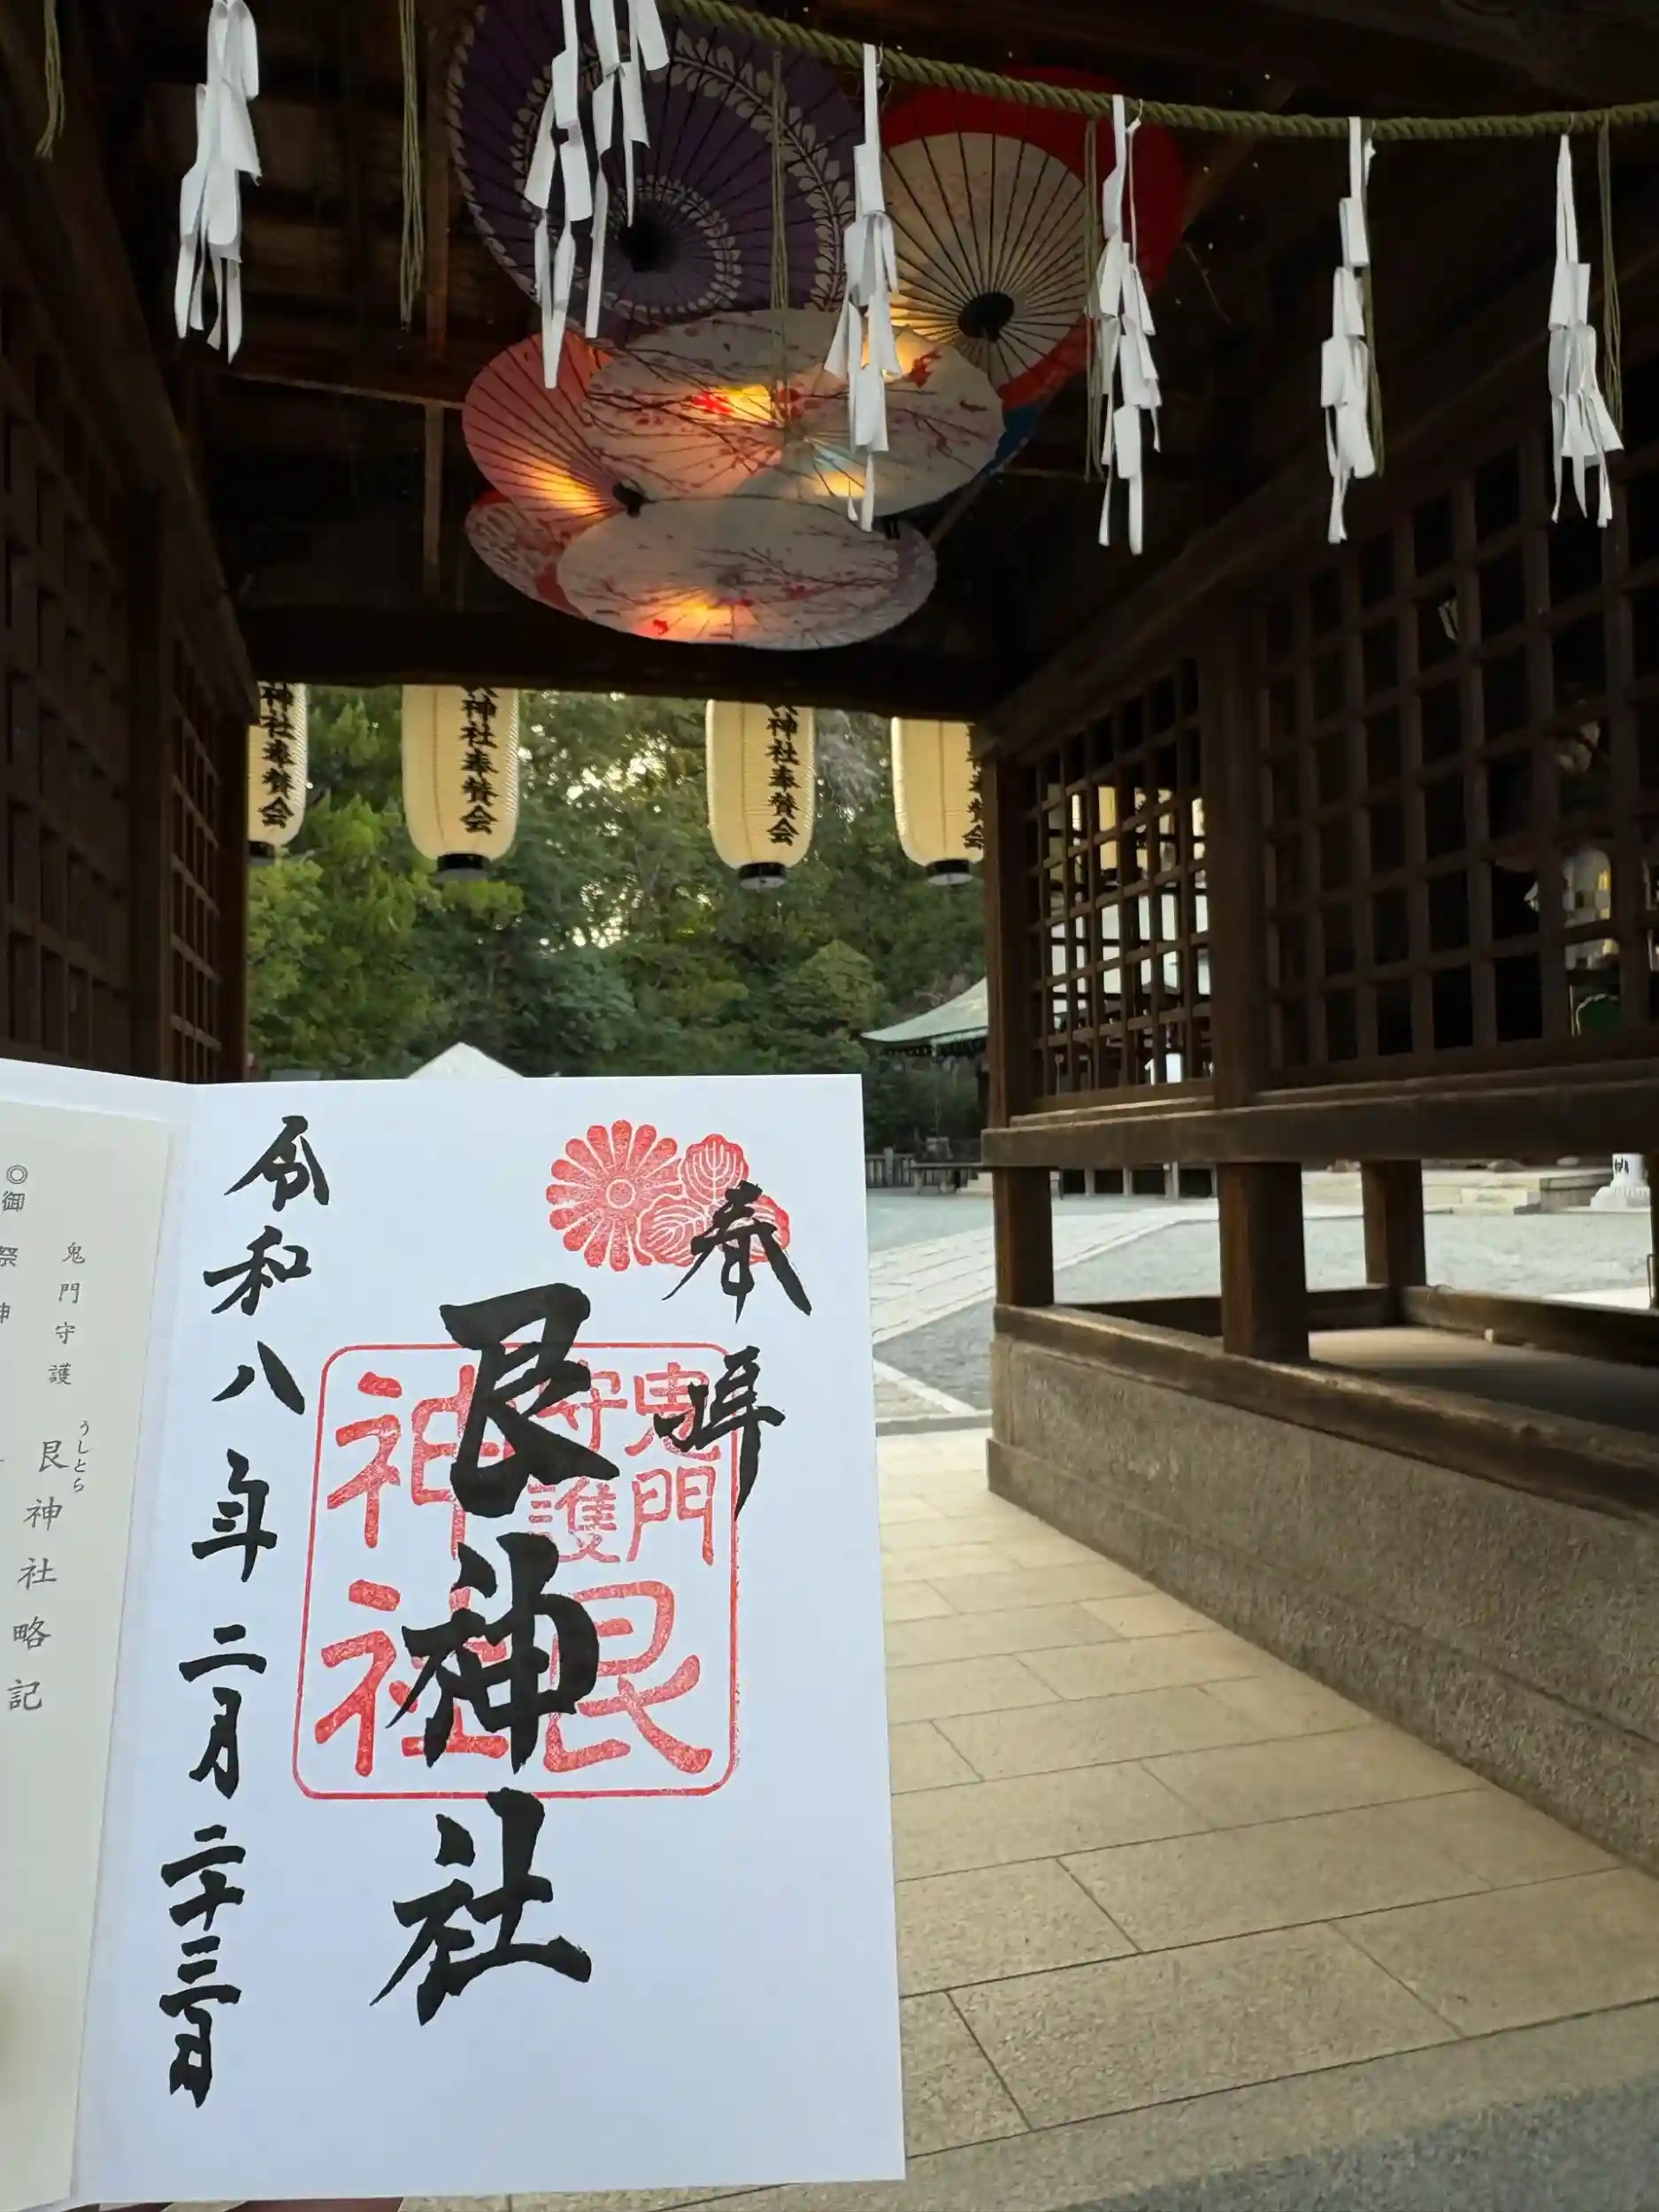 神社奉賛会
神社奉賛会
神社奉賛会
奉拝
艮神社
鬼門
守護
艮
神社
令和八年二月二十三日
鬼門守護 艮神社略記
うしとら
◎御祭神